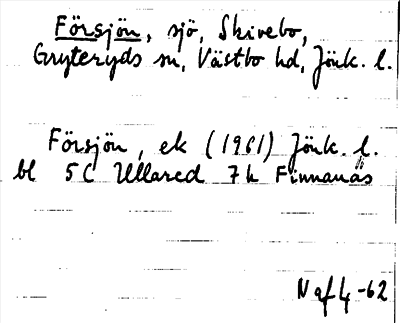 Försjön, sjö, Skivebo,
Gryteryds sn, Västbo hd, Jönk. l.
Försjön, ek (1961) Jönk. l.
bl 5C Ullared 7h Finnanäs
N af 4 -62